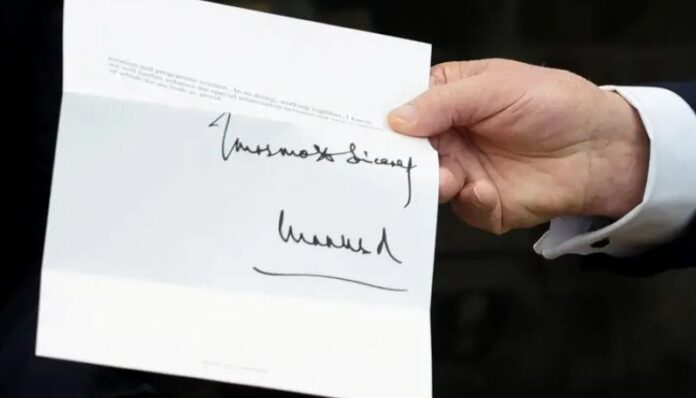 location and programme content. In so doing, working together, I know
we will further enhance the special relationship between our two countries
of which we are both so proud.
Yours most Sincerely
Charles R